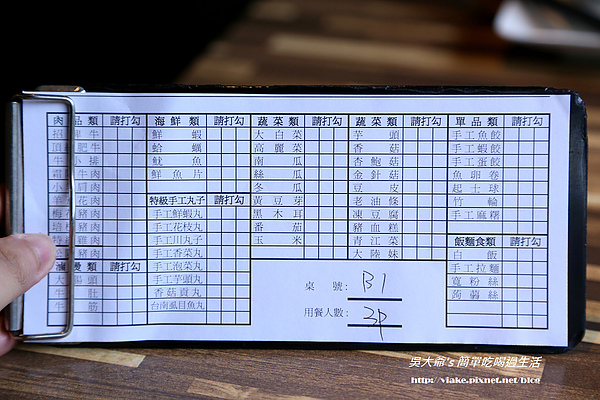 肉品類 請打勾
牛小排
海鮮類 請打勾
鮮蝦
蛤蠣
魷魚
鮮魚片
特級手工丸子 請打勾
手工鮮蝦丸
手工花枝丸
手工川丸子
手工香菜丸
手工泡菜丸
手工芋頭丸
香菇貢丸
台南虱目魚丸
蔬菜類 請打勾
大白菜
高麗菜
南瓜
絲瓜
冬瓜
黃豆芽
黑木耳
番茄
玉米
蔬菜類 請打勾
芋頭
香菇
杏鮑菇
金針菇
豆皮
老油條
凍豆腐
豬血糕
青江菜
大陸妹
單品類 請打勾
手工魚餃
手工蝦餃
手工蛋餃
魚卵卷
起士球
竹輪
手工麻糬
飯麵食類 請打勾
白飯
手工拉麵
寬粉絲
蒟蒻絲
桌號: B1
用餐人數: 3P
吳大爺's 簡單吃喝過生活
http://viake.pixnet.net/blog